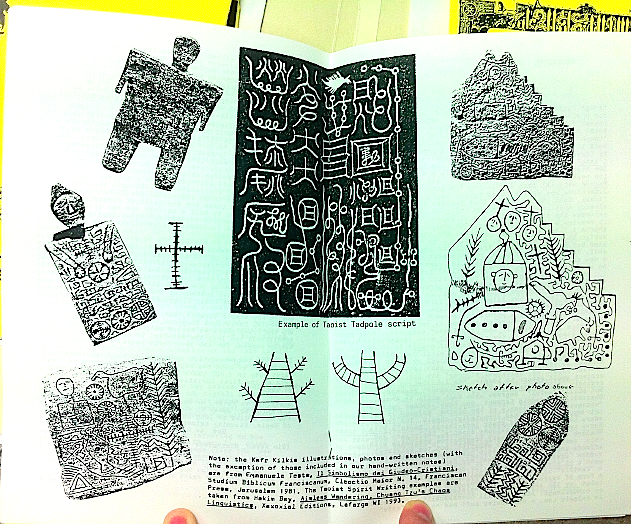 Example of Taoist Tadpole script
sketch after photo above
Note: the Kafr Kilkia illustrations, photos and sketches (with
the exception of those included in our hand-written notes)
are from Emmanuele Testa, Il Simbolismo dei Giudeo-Cristiani,
Studium Biblicum Franciscanum, Collectio Maior N. 14, Franciscan
Press, Jerusalem 1981. The Taoist Spirit Writing examples are
taken from Hakim Bey, Aimless Wandering, Chuang Tzu's Chaos
Linguistics, Xexoxial Editions, Lafarge WI 1993.